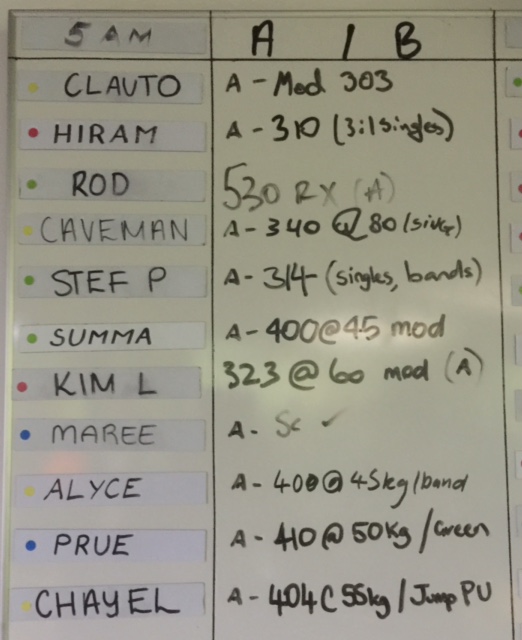 5 AM A / B
CLAUTO A - Mod 303
HIRAM A - 310 (3:1 singles)
ROD 530 RX (A)
CAVEMAN A - 340 @ 80 /
STEF P A - 314 (singles, bands)
SUMMA A - 400@45 mod
KIM L 323 @ 60 mod (A)
MAREE A - Sc ✓
ALYCE A - 400@45kg/band
PRUE A - 410@50Kg/Green
CHAYEL A - 404@55kg/Jump PU